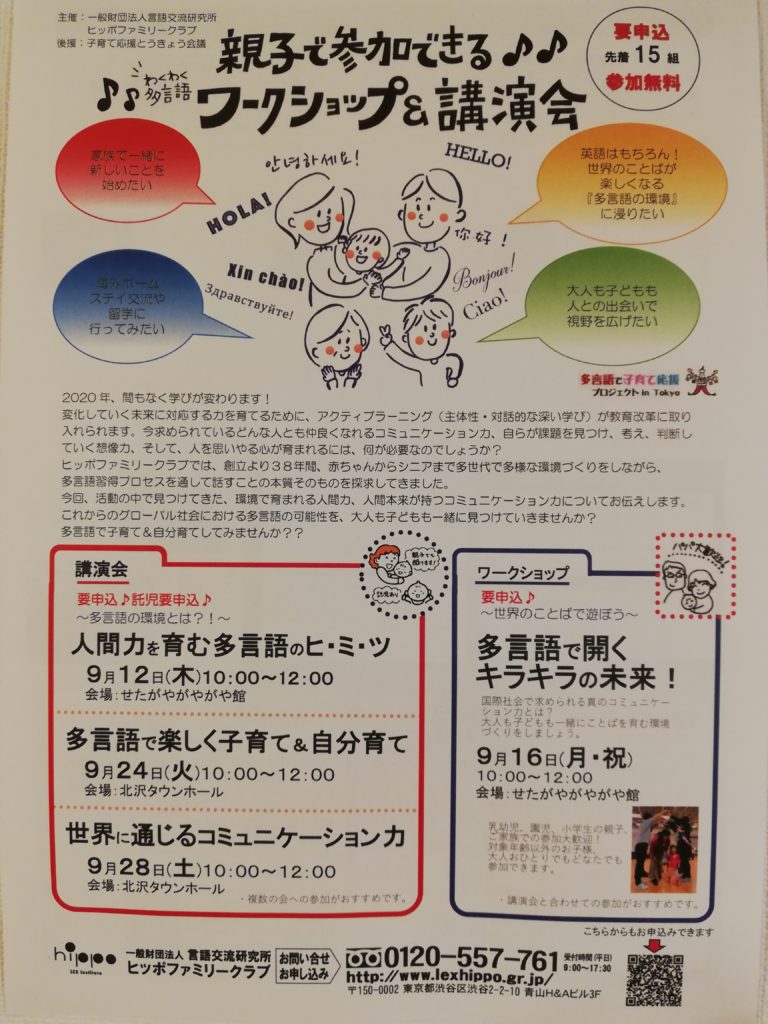 主催：一般財団法人言語交流研究所
ヒッポファミリークラブ
後援：子育て応援とうきょう会議
わくわく
多言語
親子で参加できる♪♪
ワークショップ&講演会
要申込
先着15組
参加無料
家族で一緒に
新しいことを
始めたい
英語はもちろん！
世界のことばが
楽しくなる
『多言語の環境』
に浸りたい
海外ホーム
ステイ交流や
留学に
行ってみたい
大人も子どもも
人との出会いで
視野を広げたい
안녕하세요!
HELLO!
HOLA!
你好！
Xin chào!
Bonjour!
Здравствуйте!
Ciao!
多言語で子育て応援
プロジェクト in Tokyo
2020年、間もなく学びが変わります！
変化していく未来に対応する力を育てるために、アクティブラーニング（主体性・対話的な深い学び）が教育改革に取り
入れられます。今求められているどんな人とも仲良くなれるコミュニケーション力、自らが課題を見つけ、考え、判断し
ていく想像力、そして、人を思いやる心が育まれるには、何が必要なのでしょうか？
ヒッポファミリークラブでは、創立より38年間、赤ちゃんからシニアまで多世代で多様な環境づくりをしながら、
多言語習得プロセスを通して話すことの本質そのものを探求してきました。
今回、活動の中で見つけてきた、環境で育まれる人間力、人間本来が持つコミュニケーション力についてお伝えします。
これからのグローバル社会における多言語の可能性を、大人も子どもも一緒に見つけていきませんか？
多言語で子育て＆自分育てしてみませんか？？
講演会
要申込♪託児要申込♪
～多言語の環境とは？！～
人間力を育む多言語のヒ・ミ・ツ
9月12日(木)10:00～12:00
会場：せたがやがやがや館
多言語で楽しく子育て＆自分育て
9月24日(火)10:00～12:00
会場：北沢タウンホール
世界に通じるコミュニケーション力
9月28日(土)10:00～12:00
会場：北沢タウンホール
・複数の会への参加がおすすめです。
託児あり
ワークショップ
要申込♪
～世界のことばで遊ぼう～
パパも大歓迎！
多言語で開く
キラキラの未来！
国際社会で求められる真のコミュニケー
ション力とは？
大人も子どもも一緒にことばを育む環境
づくりをしましょう。
9月16日(月・祝)
10:00～12:00
会場：せたがやがやがや館
乳幼児、園児、小学生の親子、
ご家族での参加大歓迎！
対象年齢以外のお子様、
大人おひとりでもどなたでも
参加できます。
・講演会と合わせての参加がおすすめです。
こちらからもお申込みできます
hippo
LEX Institute
一般財団法人 言語交流研究所
ヒッポファミリークラブ
お問い合せ
お申し込み
0120-557-761
受付時間(平日)
9:00～17:30
http://www.lexhippo.gr.jp/
〒150-0002 東京都渋谷区渋谷2-2-10 青山H&Aビル3F